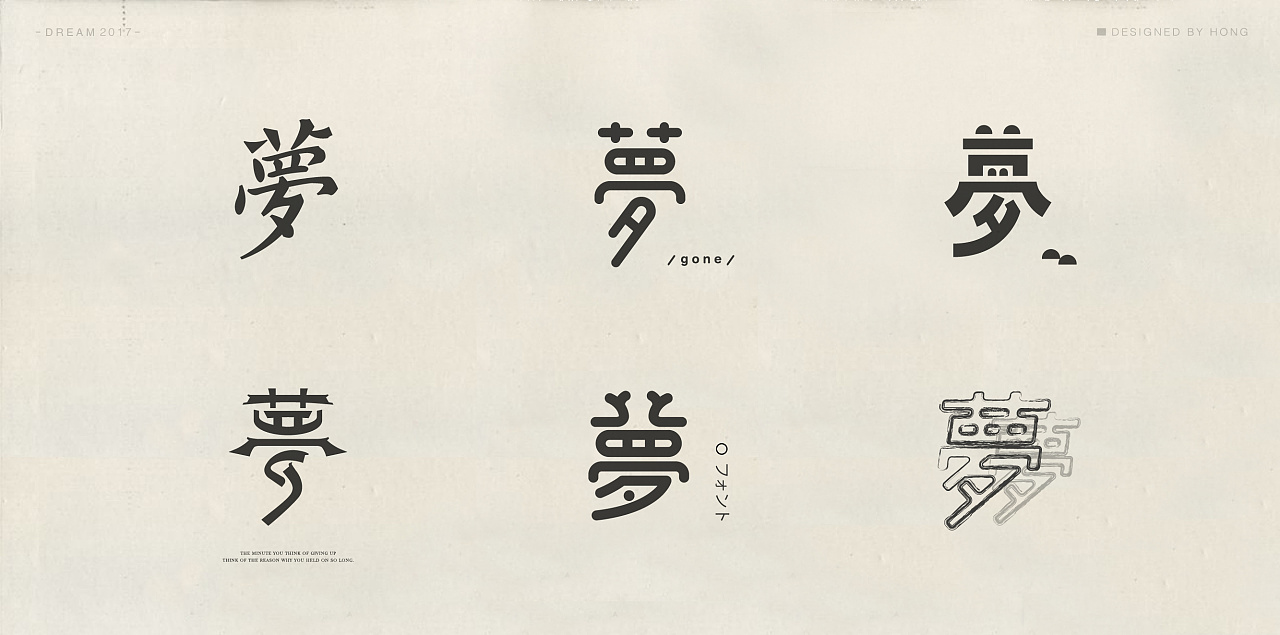 -DREAM 2017-
■ DESIGNED BY HONG
夢
夢
/gone/
夢
夢
THE MINUTE YOU THINK OF GIVING UP
THINK OF THE REASON WHY YOU HELD ON SO LONG.
夢
○フォント
夢
夢